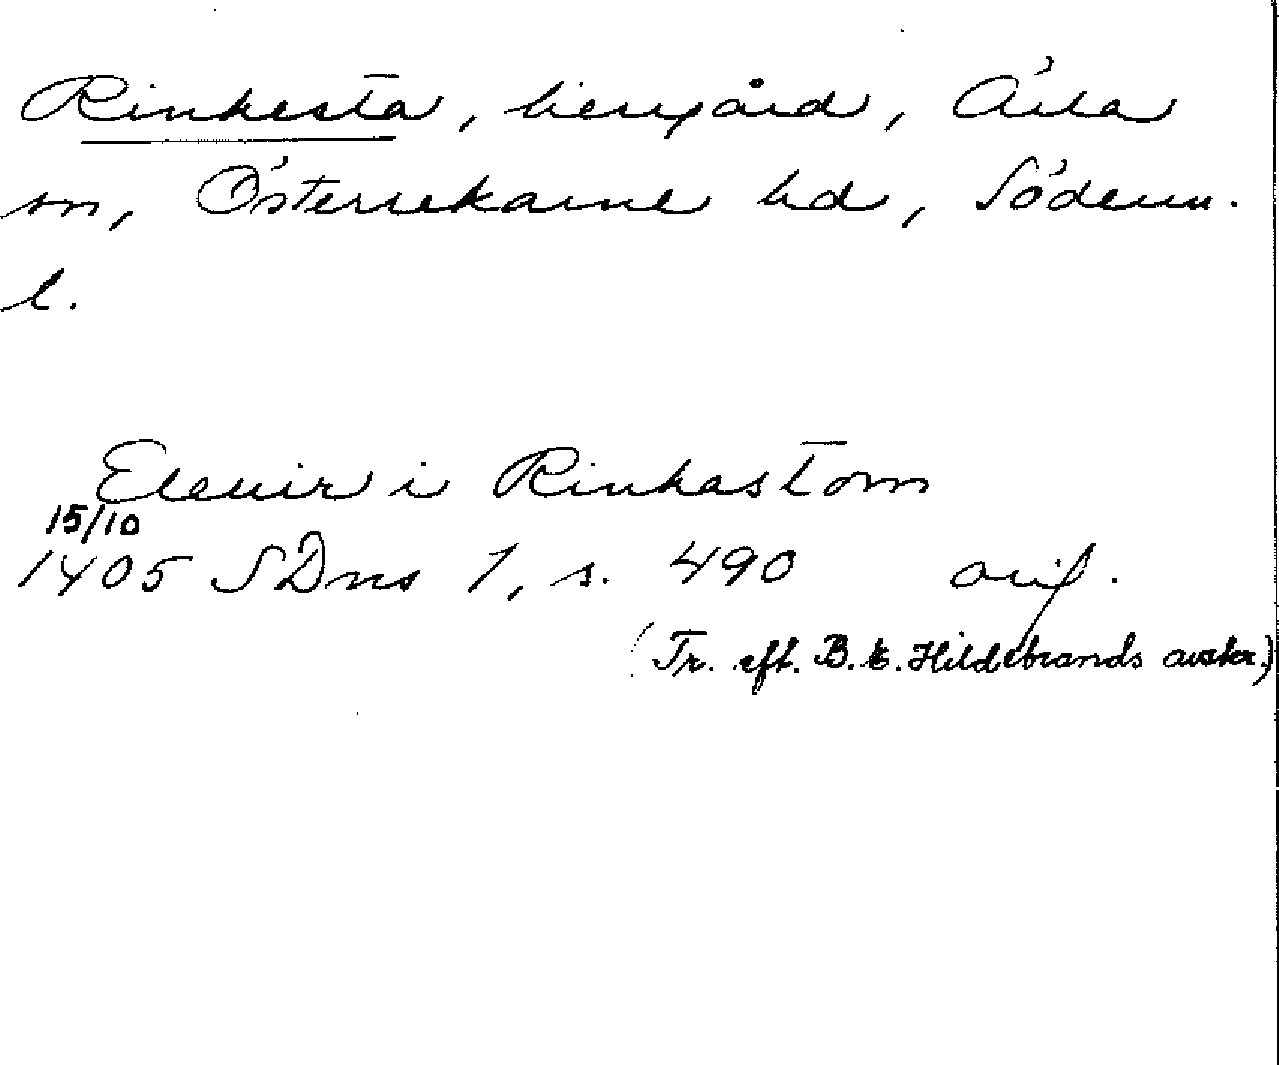 Rinkesta, herrgård, Ärla
sn, Österrekarne hd, Söderm.
l.
Elauir i Rinkastom
15/10
1405 SDns 1, s. 490 orig.
(Tr. eft. B. E. Hildebrands avskr.)